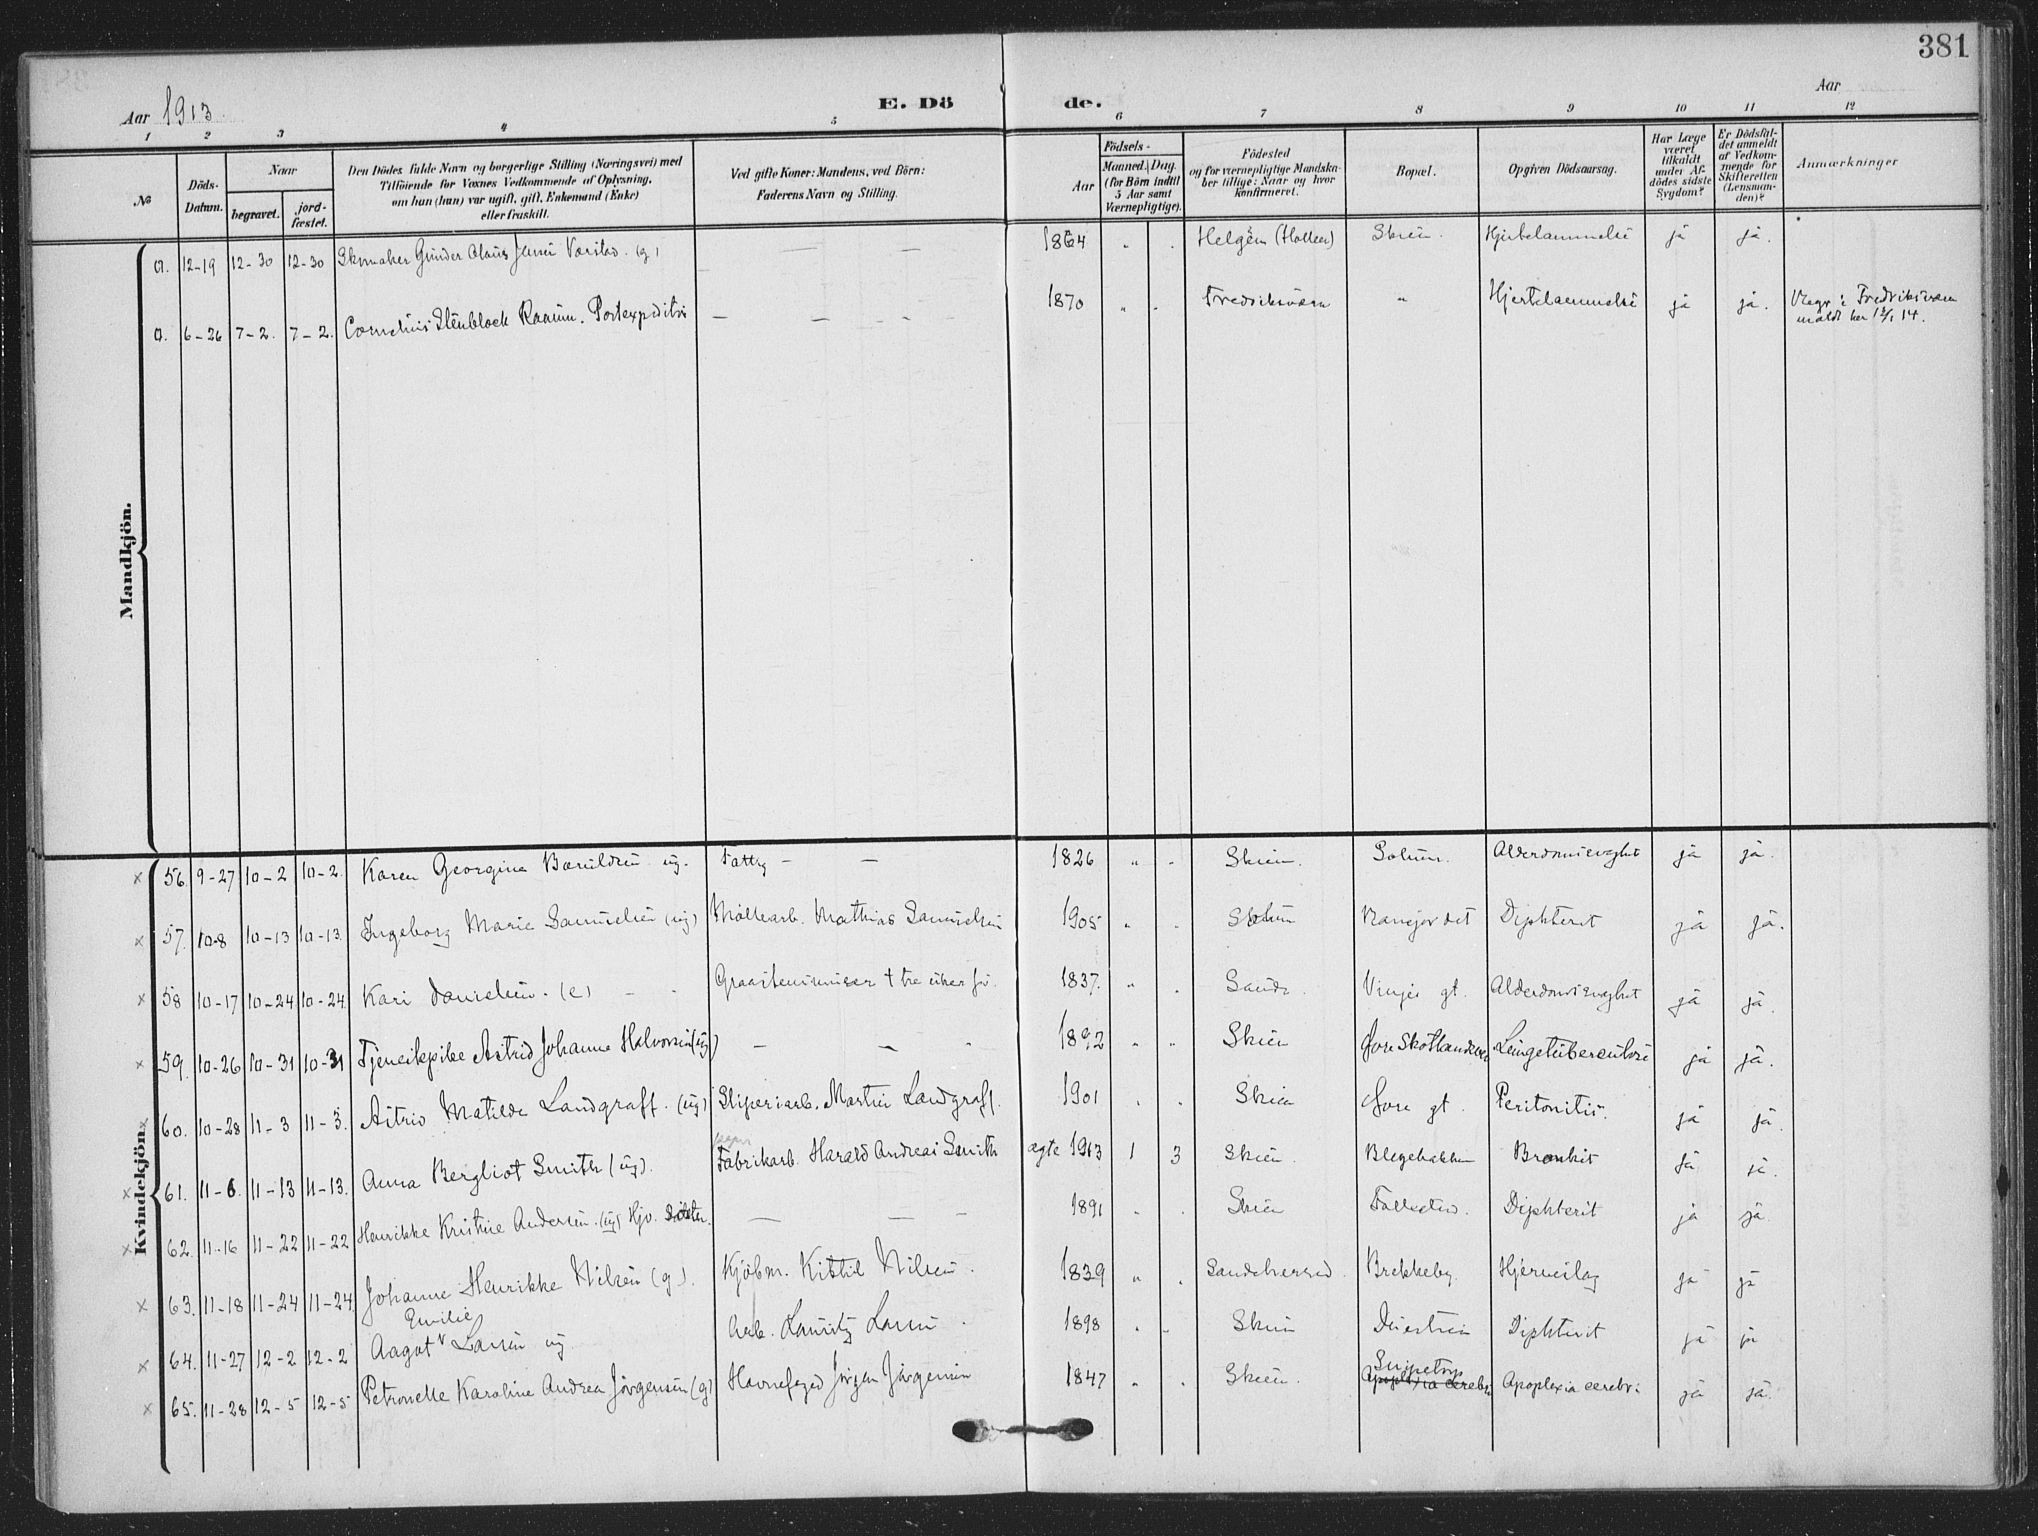 381
Aar 1913.
E. Dö de.
Aar
1 2 3 4 5 6 7 8 9 10 11 12
No
Döds-Datum.
Naar
begravet.
jord-fæstet.
Den Dödes fulde Navn og borgerlige Stilling (Næringsvei) med
Tilföiende for Voxnes Vedkommende af Oplysning,
om hun (han) var ugift, gift, Enkemand (Enke)
eller fraskilt.
Ved gifte Koner: Mandens, ved Börn:
Faderens Navn og Stilling.
Födsels-
Aar
Maaned. Dag.
(for Börn indtil
5 Aar samt
Værnepligtige).
Födested
og for værnepligtige Mandska-
ber tillige: Naar og hvor
konfirmeret.
Bopæl.
Opgiven Dödsaarsag.
Har Læge
været
tilkaldt
under Af-
dödes sidste
Sygdom?
Er Dödsfal-
det anmeldt
af Vedkom-
mende for
Skifteretten
(Lensman-
den)?
Anmærkninger
Mandkjön.
a. 12-19 12-30 12-30 Skomaker Gunder Olaus Jensen (g) — 1864 " . Helgen (Hollen) Skien. Hjertelammelse ja ja.
a. 6-26 7-2. 7-2. Cornelius Stenblock Raaum. Postexpeditør — — 1870 " . Fredriksværn " Hjertelammelse ja ja. Begr. i Fredriksværn
meldt her 14.
Kvindekjön.
x 56. 9-27 10-2 10-2. Karen Georgine ug. Fattig — — 1826 " . Skien. Solum. Alderdomssvaghet ja ja.
x 57. 10-8 10-13 10-13. Ingeborg Marie Samuelsen (ug) Möllearb. Mathias Samuelsen 1905 " . Solum Diphterit ja ja.
x 58 10-17 10-24 10-24. Kari Danielsen. (e) — Graastensminer 1837. " . Sande. Vinjes gt. Alderdomssvaghet ja ja.
x 59. 10-26 10-31 10-31 Tjenestepike Astrid Johanne Halvorsen (ug) — — 1892 " " Skien Lungetuberculose ja ja.
x 60. 10-28 11-3 11-3. Astrid Matilde Landgraff. (ug) Sliperiarb. Martin Landgraff. 1901 . . Skien gt. Peritonitis. ja ja.
x 61. 11-6. 11-13 11-13. Anna Bergliot Smith (ug). Fabrikarb. Harald Andreas Smith ægte 1913 1 3 Skien. Blegebakken Bronkit ja ja.
x 62. 11-16 11-22 11-22 Henrikke Kristine Andersen. (ug) — — 1891 . . Skien Follestad. Diphterit ja ja.
x 63. 11-18 11-24 11-24 Johanne Henrikke Nilsen (g). Kjöbm. Kittil Nilsen. 1839 " . Sandeherred. Brekkeby. Hjerneslag ja ja
x 64. 11-27 12-2 12-2 Aagot Emilie Larsen ug Arb. Lauritz Larsen. 1898 . . Skien Duestien Diphterit ja ja
x 65. 11-28 12-5 12-5 Petronelle Karoline Andrea Jörgensen (g) Havnefoged Jörgen Jörgensen 1847 " . Skien. Snipetorp Apoplexia cerebri Apoplexia cerebri ja ja.